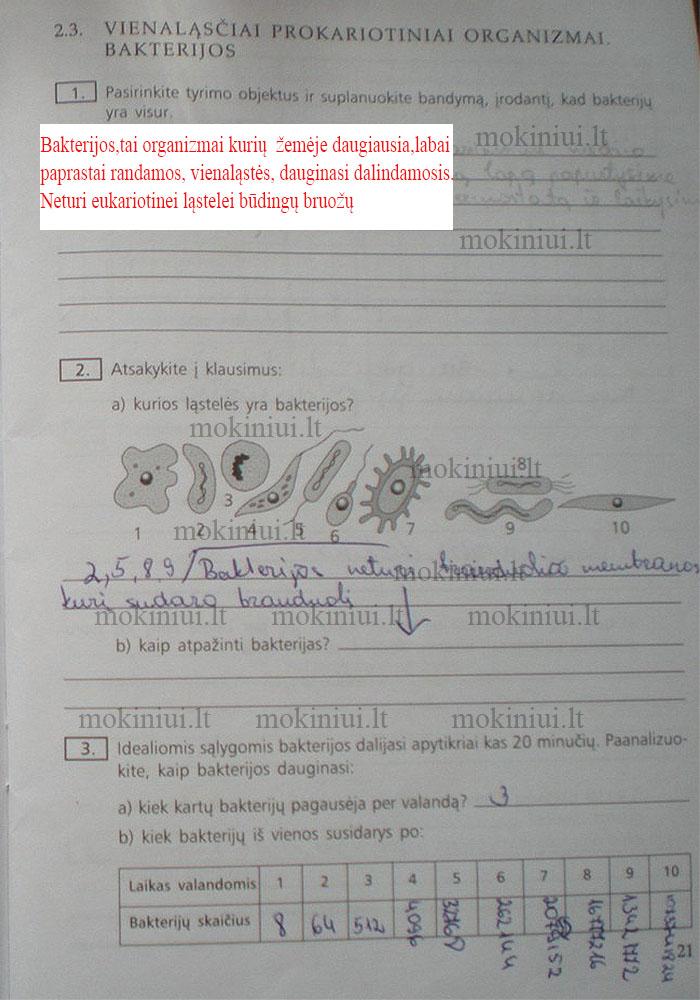 2.3. VIENALĄSČIAI PROKARIOTINIAI ORGANIZMAI.
BAKTERIJOS
1. Pasirinkite tyrimo objektus ir suplanuokite bandymą, įrodantį, kad bakterijų
yra visur.
Bakterijos,tai organizmai kurių žemėje daugiausia,labai
paprastai randamos, vienaląstės, dauginasi dalindamosis.
Neturi eukariotinei ląstelei būdingų bruožų
mokiniui.lt
lapą
mokiniui.lt
2. Atsakykite į klausimus:
a) kurios ląstelės yra bakterijos?
mokiniui.lt
mokiniui.lt
8
3
1 2 4 5 6 7 9 10
mokiniui.lt
2,5,8,9/Bakterijos neturi membranos
mokiniui.lt
kuri sudaro branduolį
mokiniui.lt mokiniui.lt mokiniui.lt
b) kaip atpažinti bakterijas?
mokiniui.lt mokiniui.lt mokiniui.lt
3. Idealiomis sąlygomis bakterijos dalijasi apytikriai kas 20 minučių. Paanalizuo-
kite, kaip bakterijos dauginasi:
a) kiek kartų bakterijų pagausėja per valandą? 3
b) kiek bakterijų iš vienos susidarys po:
Laikas valandomis 1 2 3 4 5 6 7 8 9 10
Bakterijų skaičius 8 64 512 4096 32768 262144
21